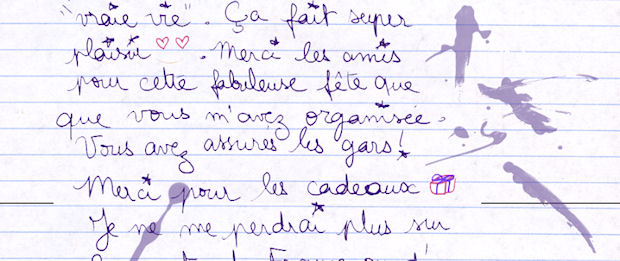 "vraie vie". Ça fait super
plaisir ♡♡. Merci les amis
pour cette fabuleuse fête que
que vous m'avez organisée.
Vous avez assurés les gars!
Merci pour les cadeaux 🎁
Je ne me perdrai plus sur